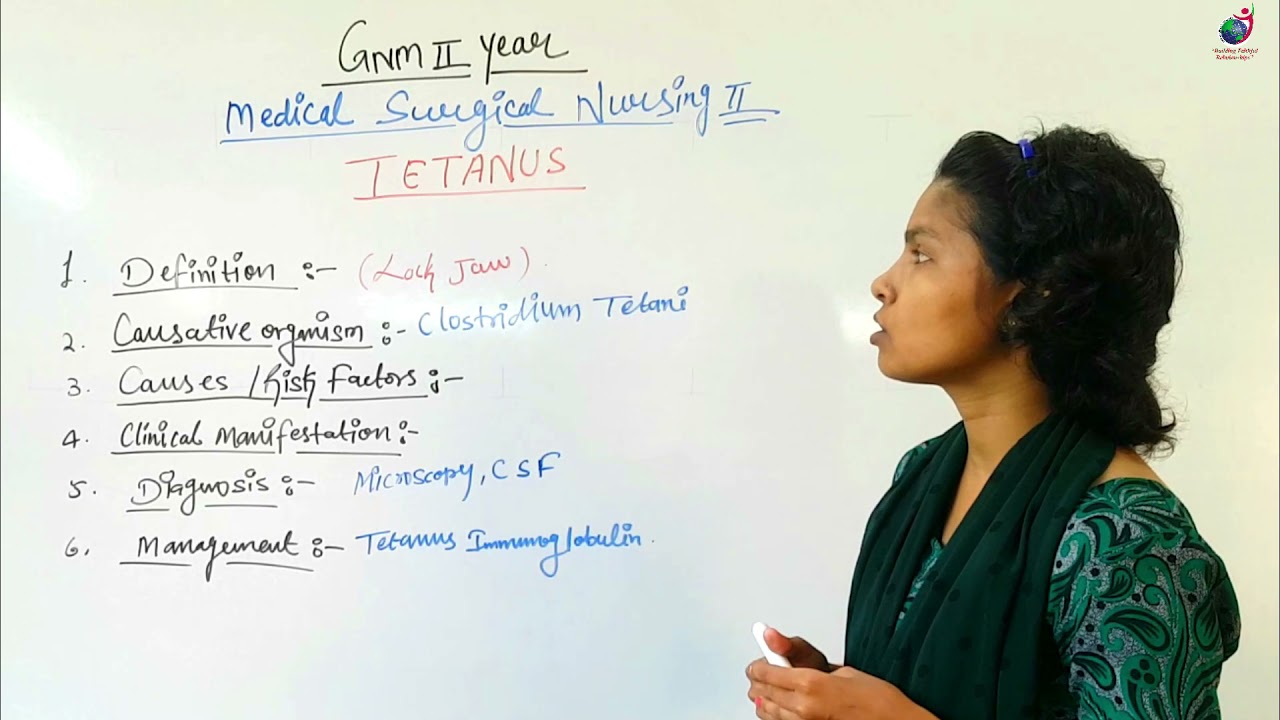 GNM II year
Medical Surgical Nursing II
TETANUS
1. Definition :- (Lock Jaw).
2. Causative organism :- Clostridium Tetani
3. Causes / Risk Factors :-
4. Clinical manifestation :-
5. Diagnosis :- Microscopy, CSF
6. Management :- Tetanus Immunoglobulin.
"Building Faithful
Relationships"